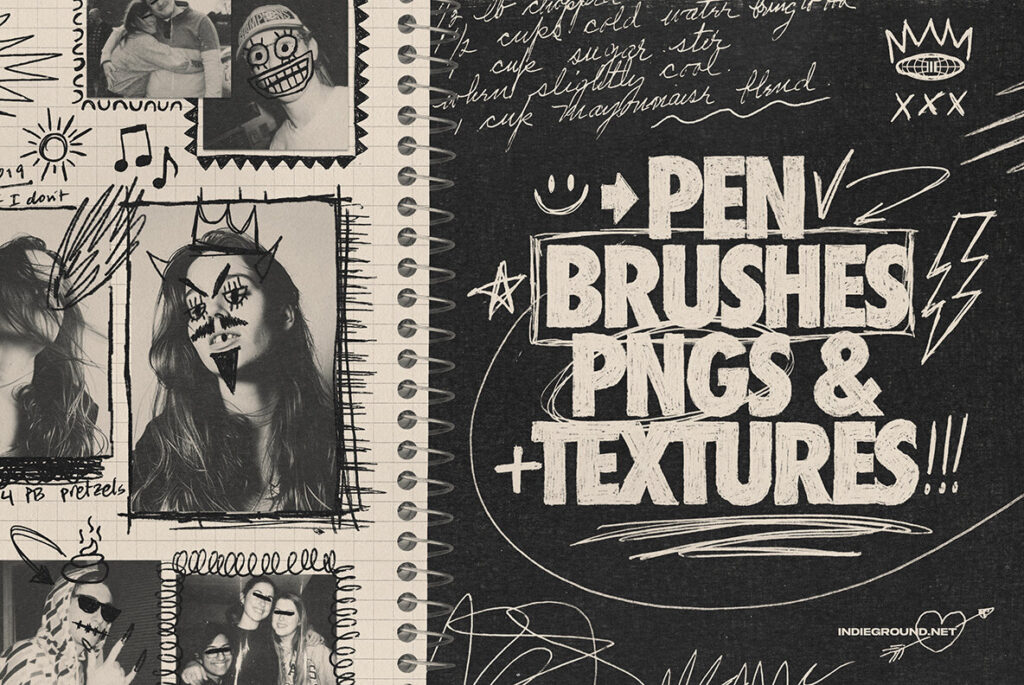 CHAMPPENS
019
I don't
4 PB pretzels
1/3 lb chopped
1 1/2 cups cold water bring to
cup sugar stir
when slightly cool.
1 cup mayonnaise blend
XXX
PEN
BRUSHES
PNGS &
+TEXTURES!!!
INDIEGROUND.NET